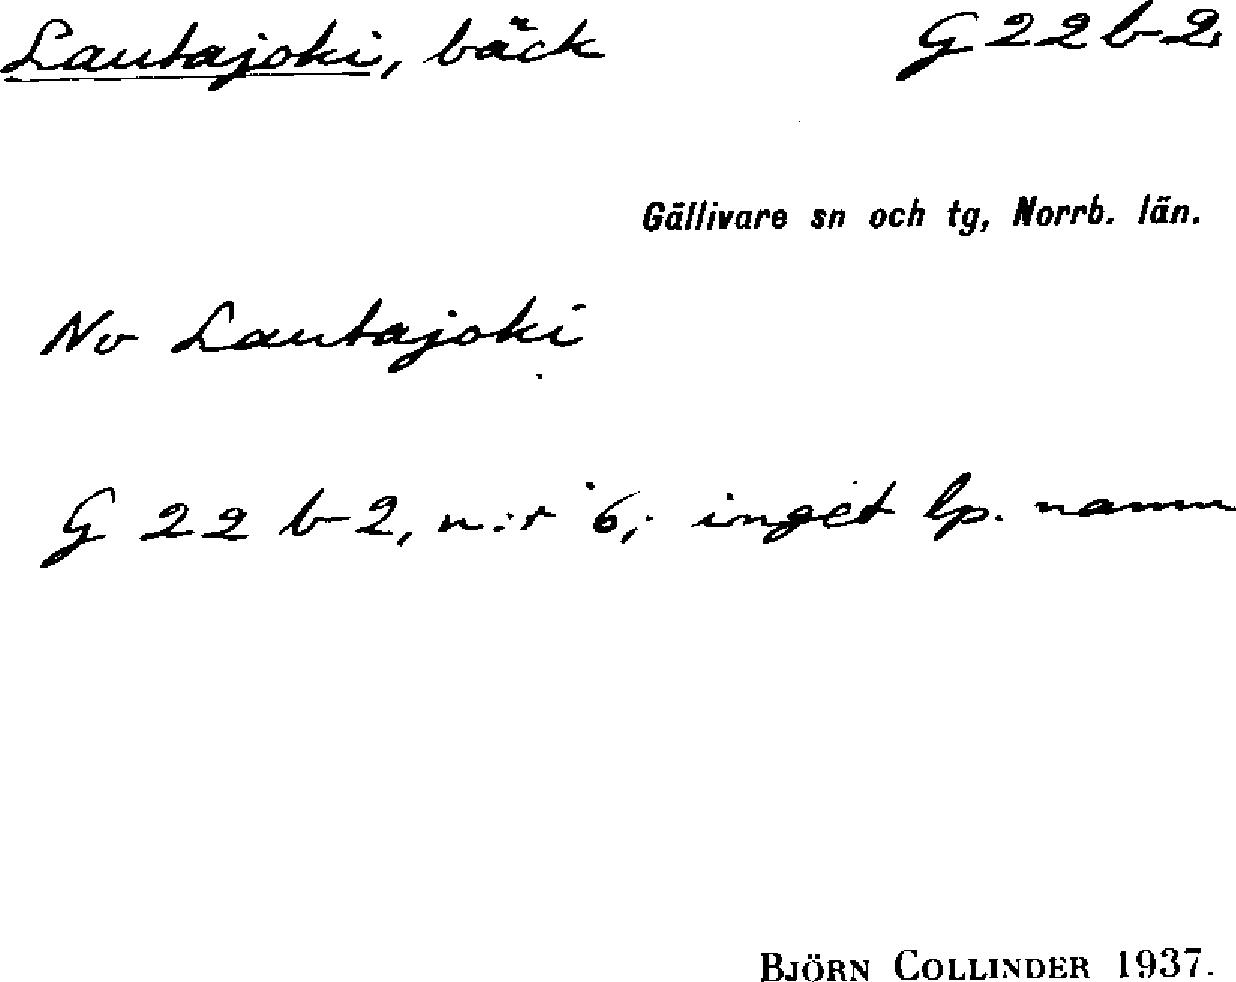 Lautajoki, bäck G 22 b 2
Gällivare sn och tg, Norrb. län.
No Lautajoki
G 22 b 2, n:r 6; inget lp. namn
BJÖRN COLLINDER 1937.